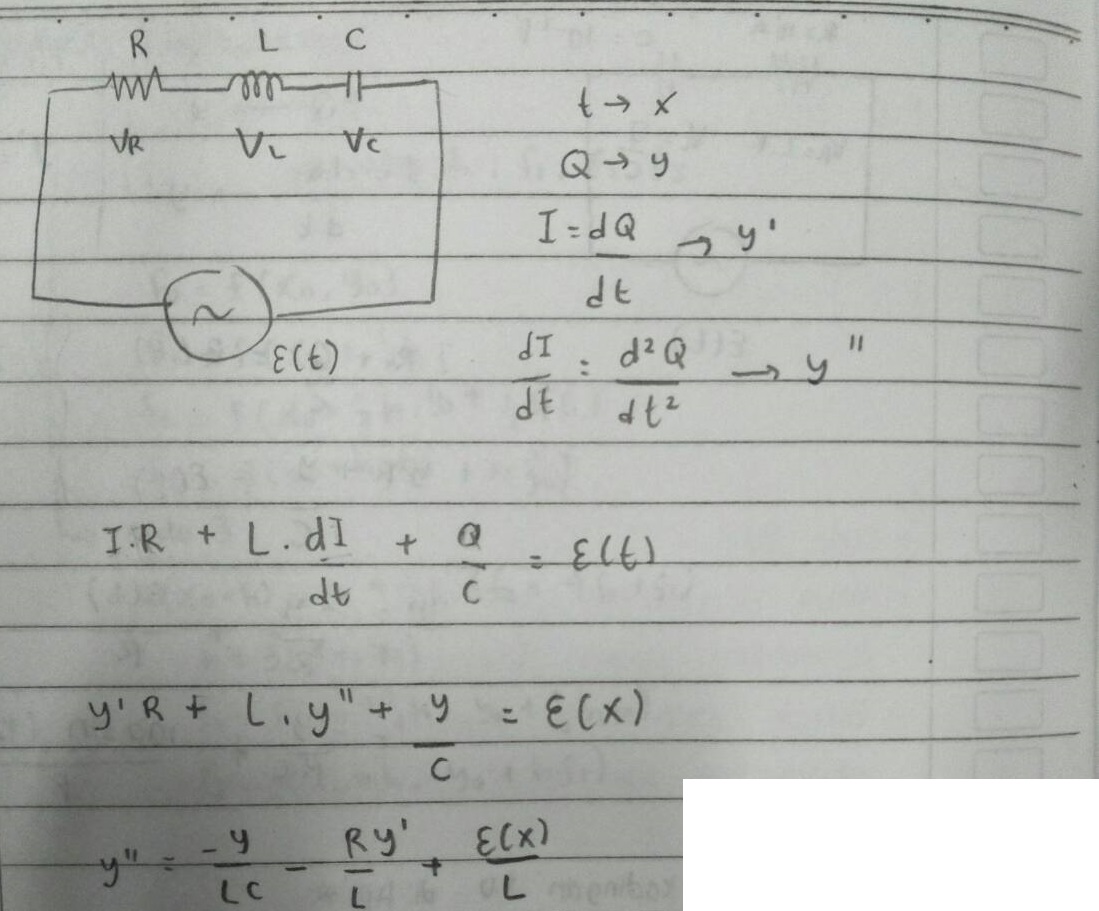 R L C
VR VL VC
ε(t)
t → x
Q → y
I = dQ/dt → y'
dI/dt = d²Q/dt² → y"
I.R + L . dI/dt + Q/C = ε(t)
y'R + L . y" + y/C = ε(x)
y" = -y/LC - Ry'/L + ε(x)/L